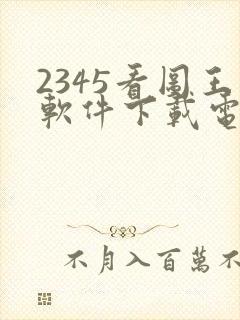 2345看圖王
軟件下載電
不月入百萬不